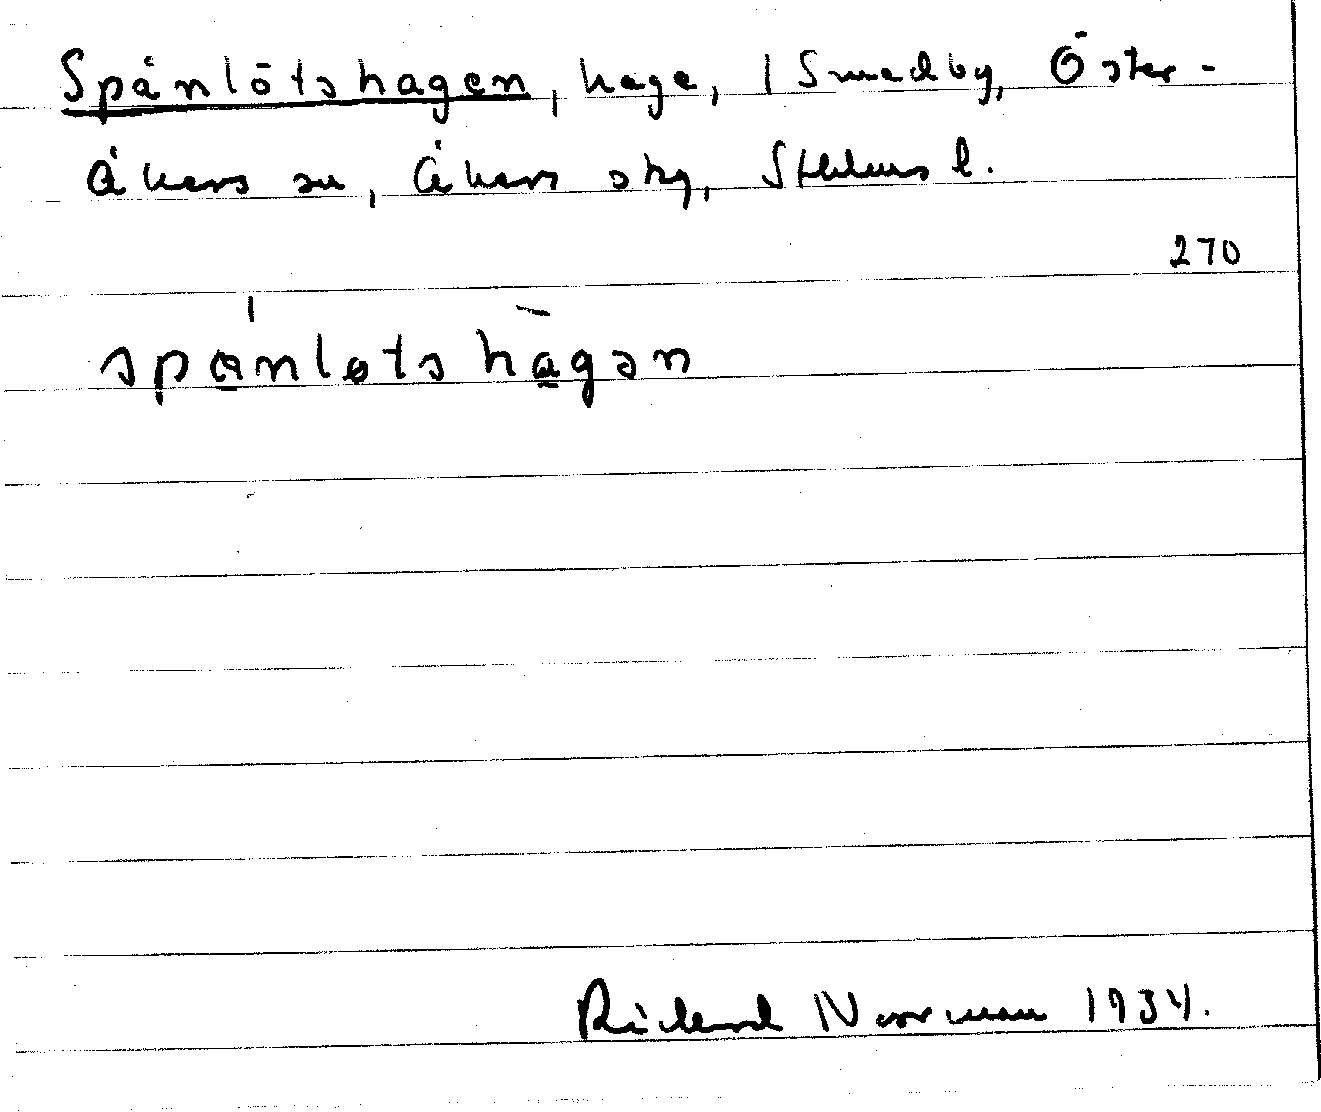 Spånlötshagen, hage, 1 Smedby, Öster-
Åkers sn, Åkers skg, Sthlms l.
270
spånløtshagən
Rickard Norrman 1934.